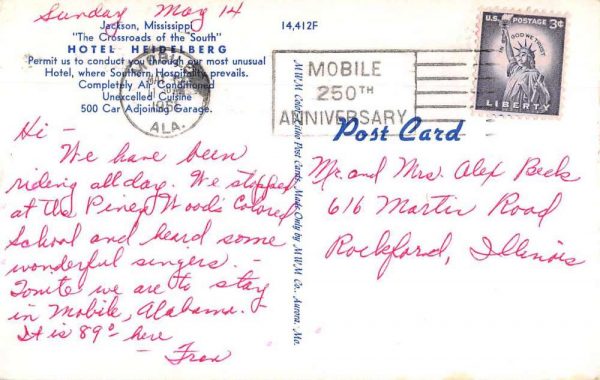 Sunday May 14
Jackson, Mississippi
"The Crossroads of the South"
HOTEL HEIDELBERG
Permit us to conduct you through our most unusual
Hotel, where Southern Hospitality prevails.
Completely Air Conditioned
Unexcelled Cuisine
500 Car Adjoining Garage.
14,412F
ALA.
MOBILE
250TH
ANNIVERSARY
U.S. POSTAGE 3¢
IN GOD WE TRUST
LIBERTY
Post Card
Hi –
We have been
riding all day. We stopped
at the Piney Woods Colored
School and heard some
wonderful singers. –
Tonite we are to stay
in Mobile, Alabama. –
It is 89° here
– Fran
M.W.M. Color-Litho Post Cards, Made Only by M.W.M. Co., Aurora, Mo.
Mr. and Mrs. Alex Beck
616 Martin Road
Rockford, Illinois